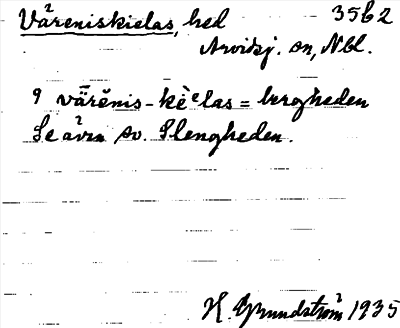 Våreniskielas, hed 35b2
Arvidsj. sn, Nbl.
9 vārĕnis-kèᵉlas = bergheden
Se även sv. Slengheden.
H. Grundström 1935